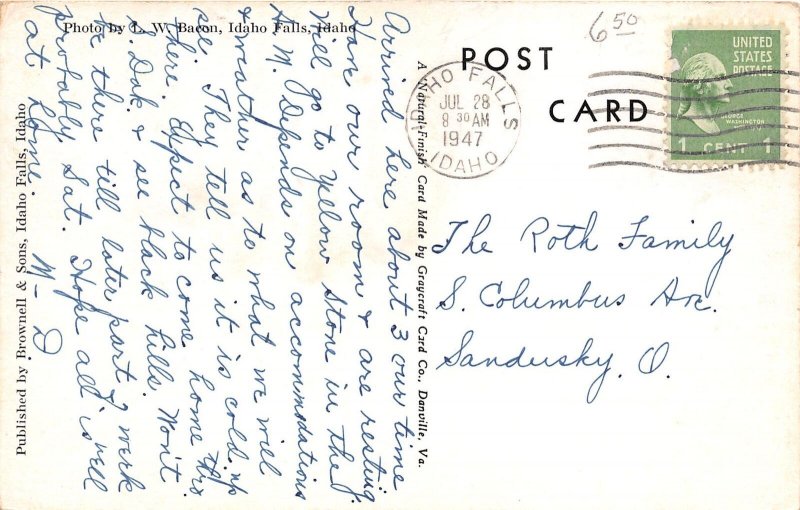 Photo by L. W. Bacon, Idaho Falls, Idaho
Published by Brownell & Sons, Idaho Falls, Idaho
A "Natural-Finish" Card Made by Graycraft Card Co., Danville, Va.
POST CARD
650
IDAHO FALLS
JUL 28
8 30 AM
1947
IDAHO
UNITED
STATES
POSTAGE
GEORGE
WASHINGTON
1 CENT 1
Arrived here about 3 our time
Have our room & are resting.
Will go to Yellow Stone in the
A.M. Depends on accommodations
& weather as to what we will
see. They tell us it is cold up
there. Expect to come home thro
S. Dak. & see black hills. Won't
be there till later part of week
probably Sat. Hope all is well
at home.
M - D
The Roth Family
S. Columbus Ave.
Sandusky, O.